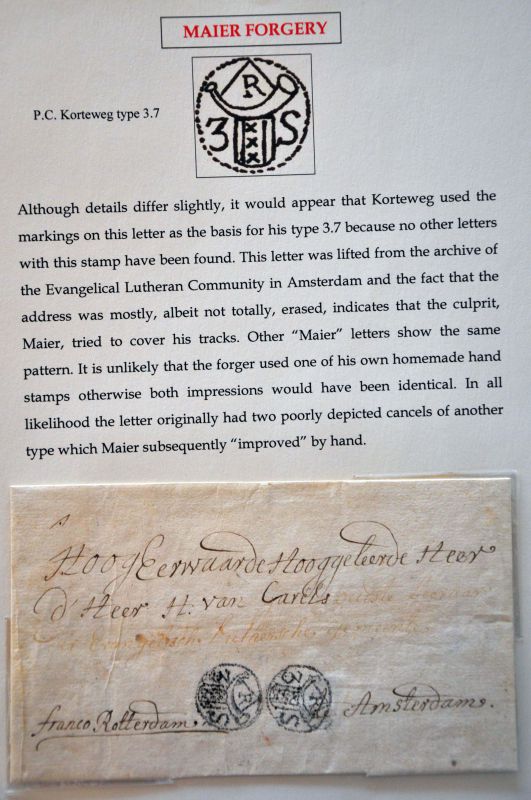 MAIER FORGERY
P.C. Korteweg type 3.7
R
3 S
xxx
Although details differ slightly, it would appear that Korteweg used the
markings on this letter as the basis for his type 3.7 because no other letters
with this stamp have been found. This letter was lifted from the archive of
the Evangelical Lutheran Community in Amsterdam and the fact that the
address was mostly, albeit not totally, erased, indicates that the culprit,
Maier, tried to cover his tracks. Other “Maier” letters show the same
pattern. It is unlikely that the forger used one of his own homemade hand
stamps otherwise both impressions would have been identical. In all
likelihood the letter originally had two poorly depicted cancels of another
type which Maier subsequently “improved” by hand.
HoogEerwaarde Hooggeleerde Heer
d' Heer H. van Carels
franco Rotterdam. Amsterdam.